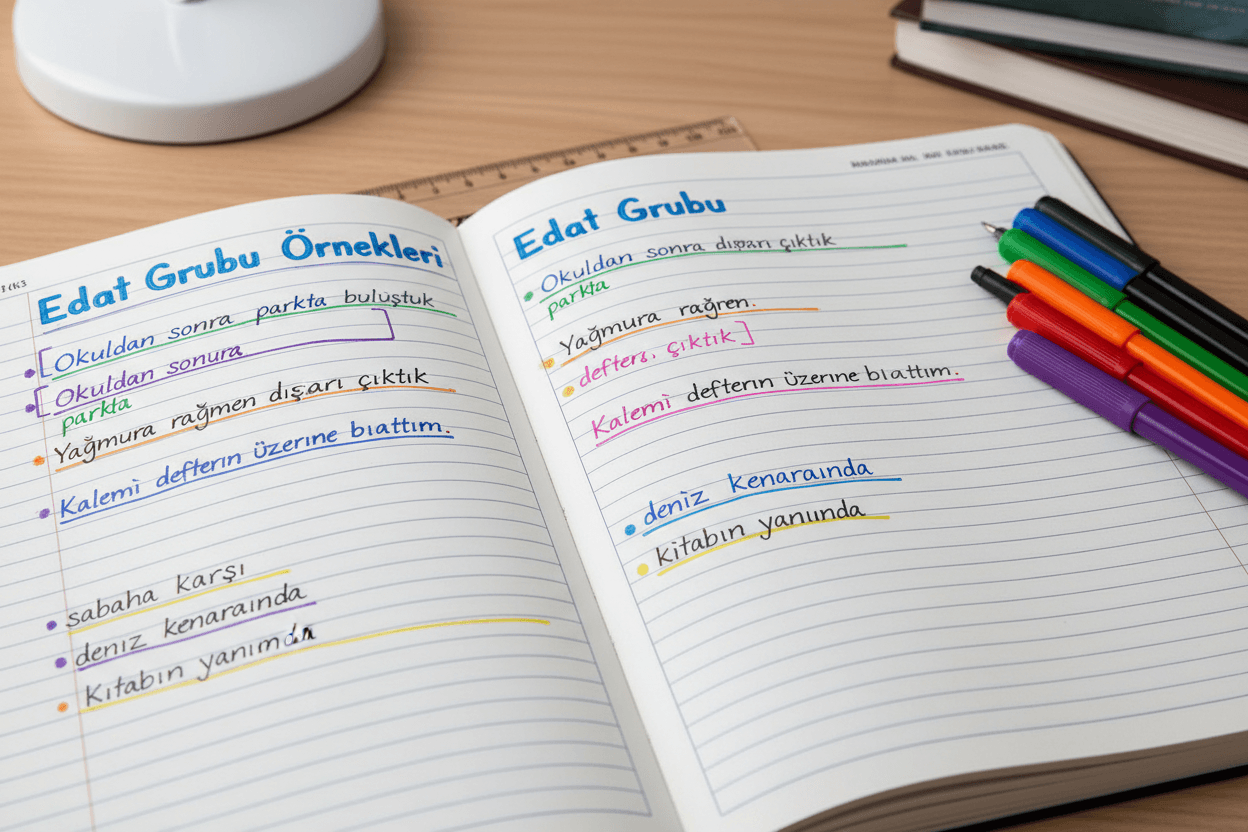 Edat Grubu Örnekleri
Okuldan sonra parkta buluştuk
Okuldan sonura
parkta
Yağmura rağmen dışarı çıktık
Kalemi defterin üzerine bıattım.
sabaha karşı
deniz kenaraında
Kitabın yanımda
Edat Grubu
Okuldan sonra dışarı çıktık
parkta
Yağmura rağren.
defters. çıktik
Kalemi defterin üzerine bıattım.
deniz kenaraında
kitabın yanıında